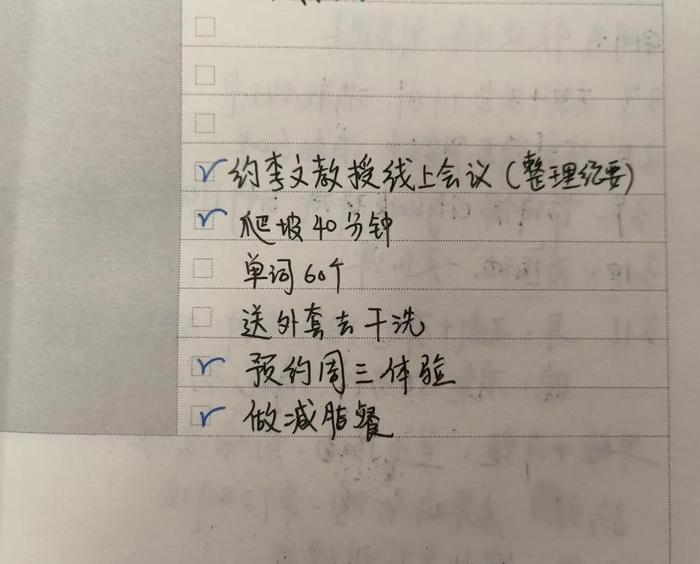 约李文教授线上会议（整理纪要）
爬坡40分钟
单词60个
送外套去干洗
预约周三体验
做减脂餐